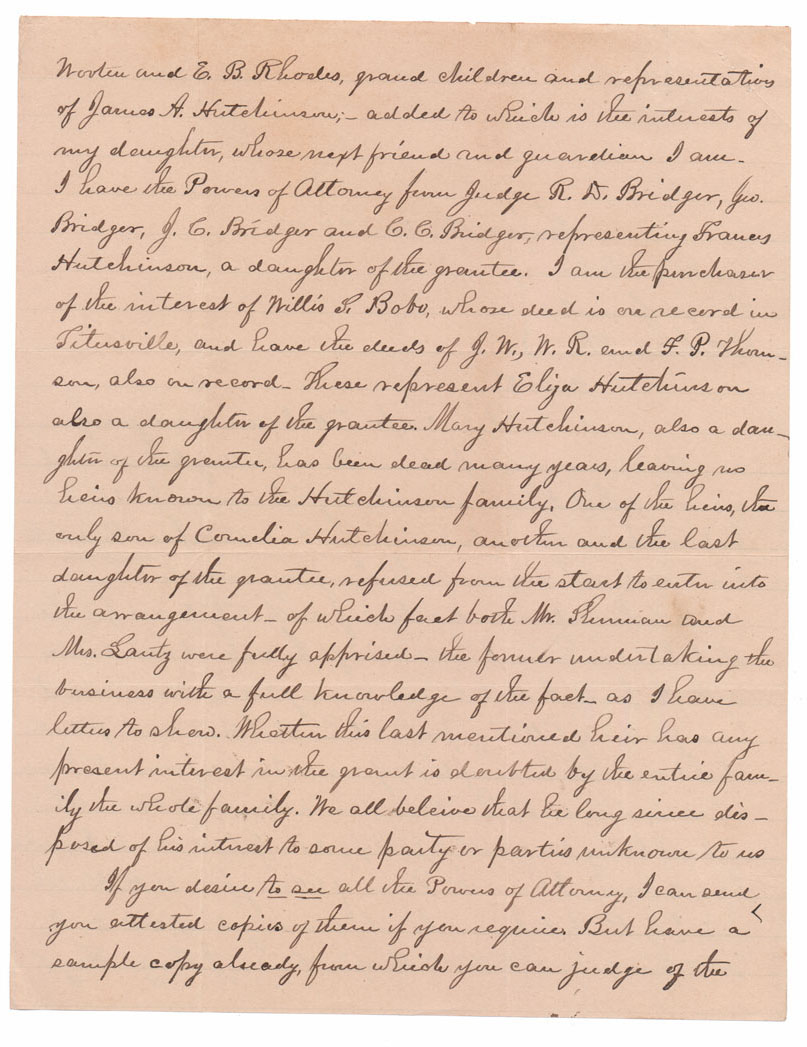 Wooten and E. B. Rhodes, grand children and representatives
of James A. Hutchinson;- added to which is the interests of
my daughter, whose next friend and guardian I am-
I have the Powers of Attorney from Judge R. D. Bridger, Geo.
Bridger, J. C. Bridger and C. C. Bridger, representing Frances
Hutchinson, a daughter of the grantee. I am the purchaser
of the interest of Willis S. Bobo, whose deed is on record in
Titusville, and have the deeds of J. W., W. R. and F. P. Thom-
son, also on record- These represent Eliza Hutchinson
also a daughter of the grantee. Mary Hutchinson, also a dau-
ghter of the grantee, has been dead many years, leaving no
heirs known to the Hutchinson family. One of the heirs, the
only son of Cornelia Hutchinson, another and the last
daughter of the grantee, refused from the start to enter into
the arrangement- of which fact both Mr. Sherman and
Mrs. Lantz were fully apprised- the former undertaking the
business with a full knowledge of the fact- as I have
letters to show. Whether this last mentioned heir has any
present interest in the grant is doubted by the entire fam-
ily the whole family. We all beleive that he long since dis-
posed of his interest to some party or parties unknown to us
If you desire to see all the Powers of Attorny, I can send
you attested copies of them if you require. But have a
sample copy already, from which you can judge of the